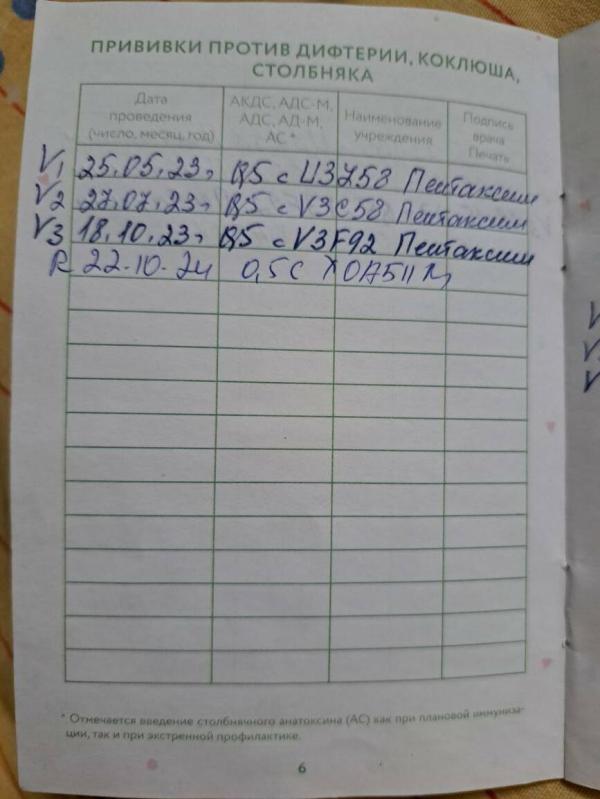 ПРИВИВКИ ПРОТИВ ДИФТЕРИИ, КОКЛЮША,
СТОЛБНЯКА
Дата проведения (число, месяц, год) АКДС, АДС-М, АДС, АД-М, АС * Наименование учреждения Подпись врача Печать
V1 25.05.23 0,5 с U3J58 Пентаксим
V2 27.07.23 0,5 с V3C58 Пентаксим
V3 18.10.23 0,5 с V3F92 Пентаксим
R 22.10.24 0,5 с
* Отмечается введение столбнячного анатоксина (АС) как при плановой иммуниза-
ции, так и при экстренной профилактике.
6